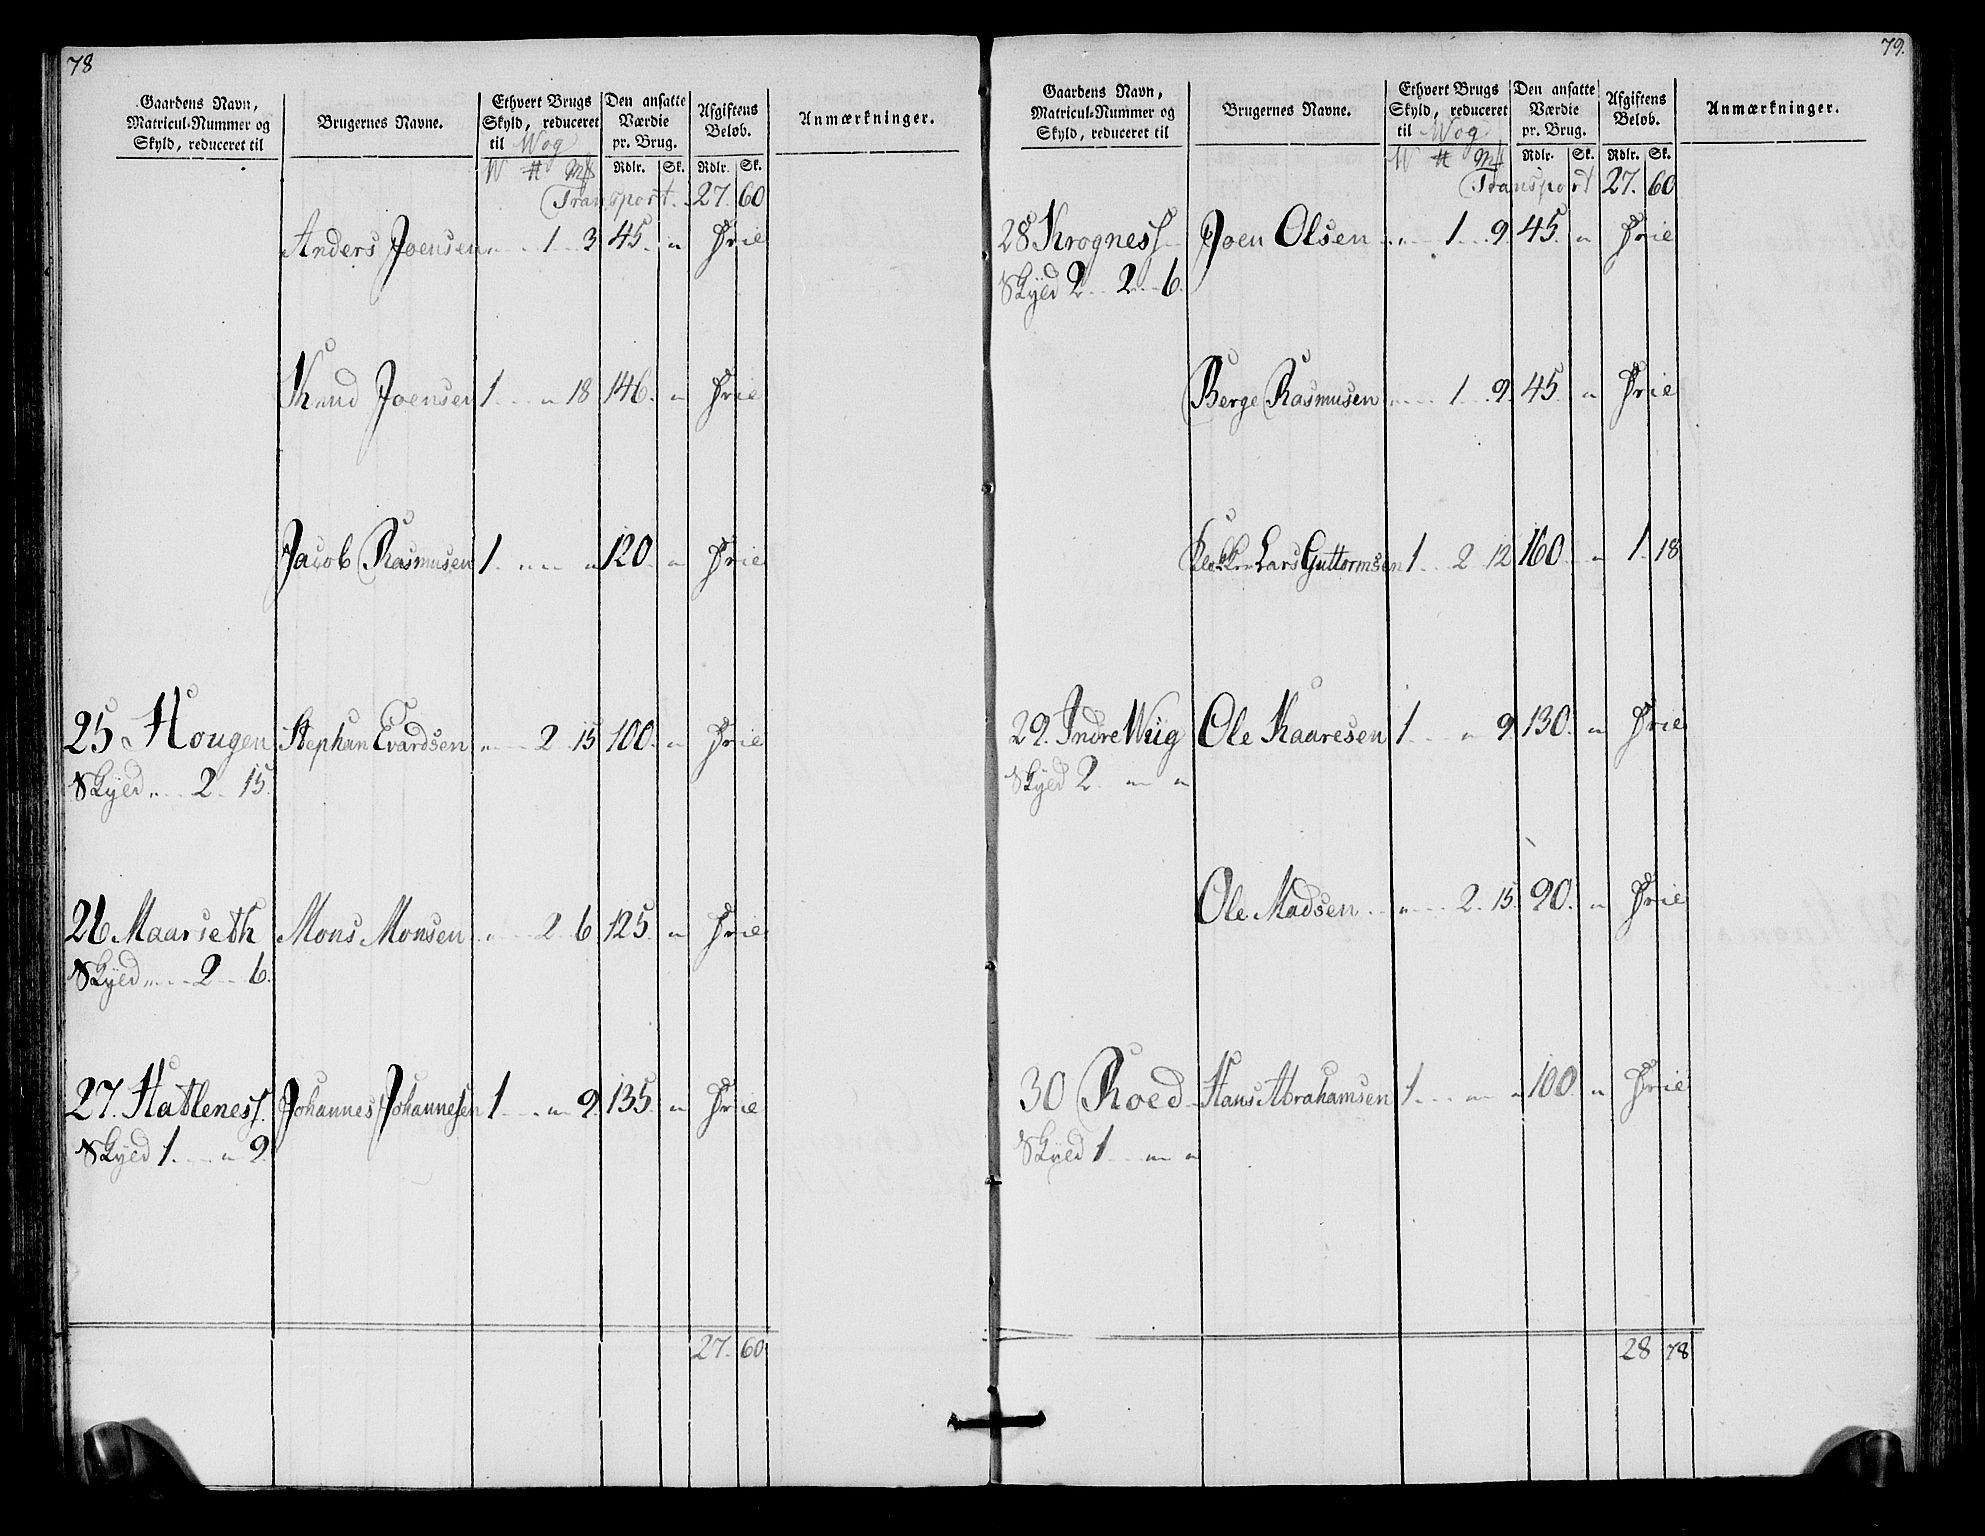 78
Gaardens Navn, Matricul-Nummer og Skyld, reduceret til | Brugernes Navne. | Ethvert Brugs Skyld, reduceret til Wog | Den ansatte Værdie pr. Brug. | Afgiftens Beløb. | Anmærkninger.
W # M | Rdlr. | Sk. | Rdlr. | Sk.
Transport. 27. 60
Anders Joensen „ 1 3 45. „ Frie
Knud Joensen 1 „ 18 146. „ Frie
Jacob Rasmusen 1 „ „ 120 „ Frie
25 Hougen Stephan Evardsen „ 2 15 100. „ Frie
Skyld „ 2 15.
26 Maarseth Mons Monsen „ 2 6 125 „ Frie
Skyld „ 2 6.
27. Hatlenes Johannes Johannesen 1 „ 9 135 „ Frie
Skyld 1 „ 9
27. 60
79.
Gaardens Navn, Matricul-Nummer og Skyld, reduceret til | Brugernes Navne. | Ethvert Brugs Skyld, reduceret til Wog | Den ansatte Værdie pr. Brug. | Afgiftens Beløb. | Anmærkninger.
W # M | Rdlr. | Sk. | Rdlr. | Sk.
Transport 27. 60
28 Krogness Joen Olsen „ 1 9 45. „ Frie
Skyld 2 2 6.
Berge Rasmusen „ 1 9. 45. „ Frie
Klokker Lars Guttormsen 1 2 12 160 „ 1. 18
29. Indre Wiig Ole Kaaresen 1 „ 9. 130. „ Frie
Skyld 2 „ „
Ole Madsen „ 2. 15 90. „ Frie
30 Roed Hans Abrahamsen 1 „ „ 100 „ Frie
Skyld 1 „ „
28 78